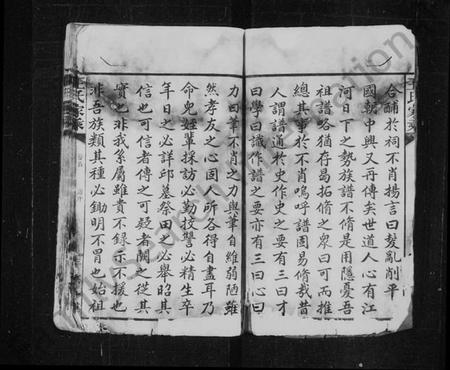 合酺於祠不肖揚言曰髮亂削平
國朝中興又再傳矣世道人心有江
河日下之勢族譜不脩是用隱憂吾
祖譜略猶存曷拓脩之衆曰可而推
總其事於不肖嗚呼譜固易脩哉昔
人謂譜通於史作史之要有三曰才
曰學曰識作譜之要亦有三曰心曰
力曰筆不肖之力與筆自維弱陋雖
然孝友之心固人所各得自盡耳乃
命兒姪輩採訪必勤挍讐必精生卒
年日之必詳邱墓祭田之必舉昭其
信也可信者傳之可疑者闕之從其
實也非我系屬雖貴不錄示不援也
非吾族類其種必鋤明不冒也始祖
氏家乘